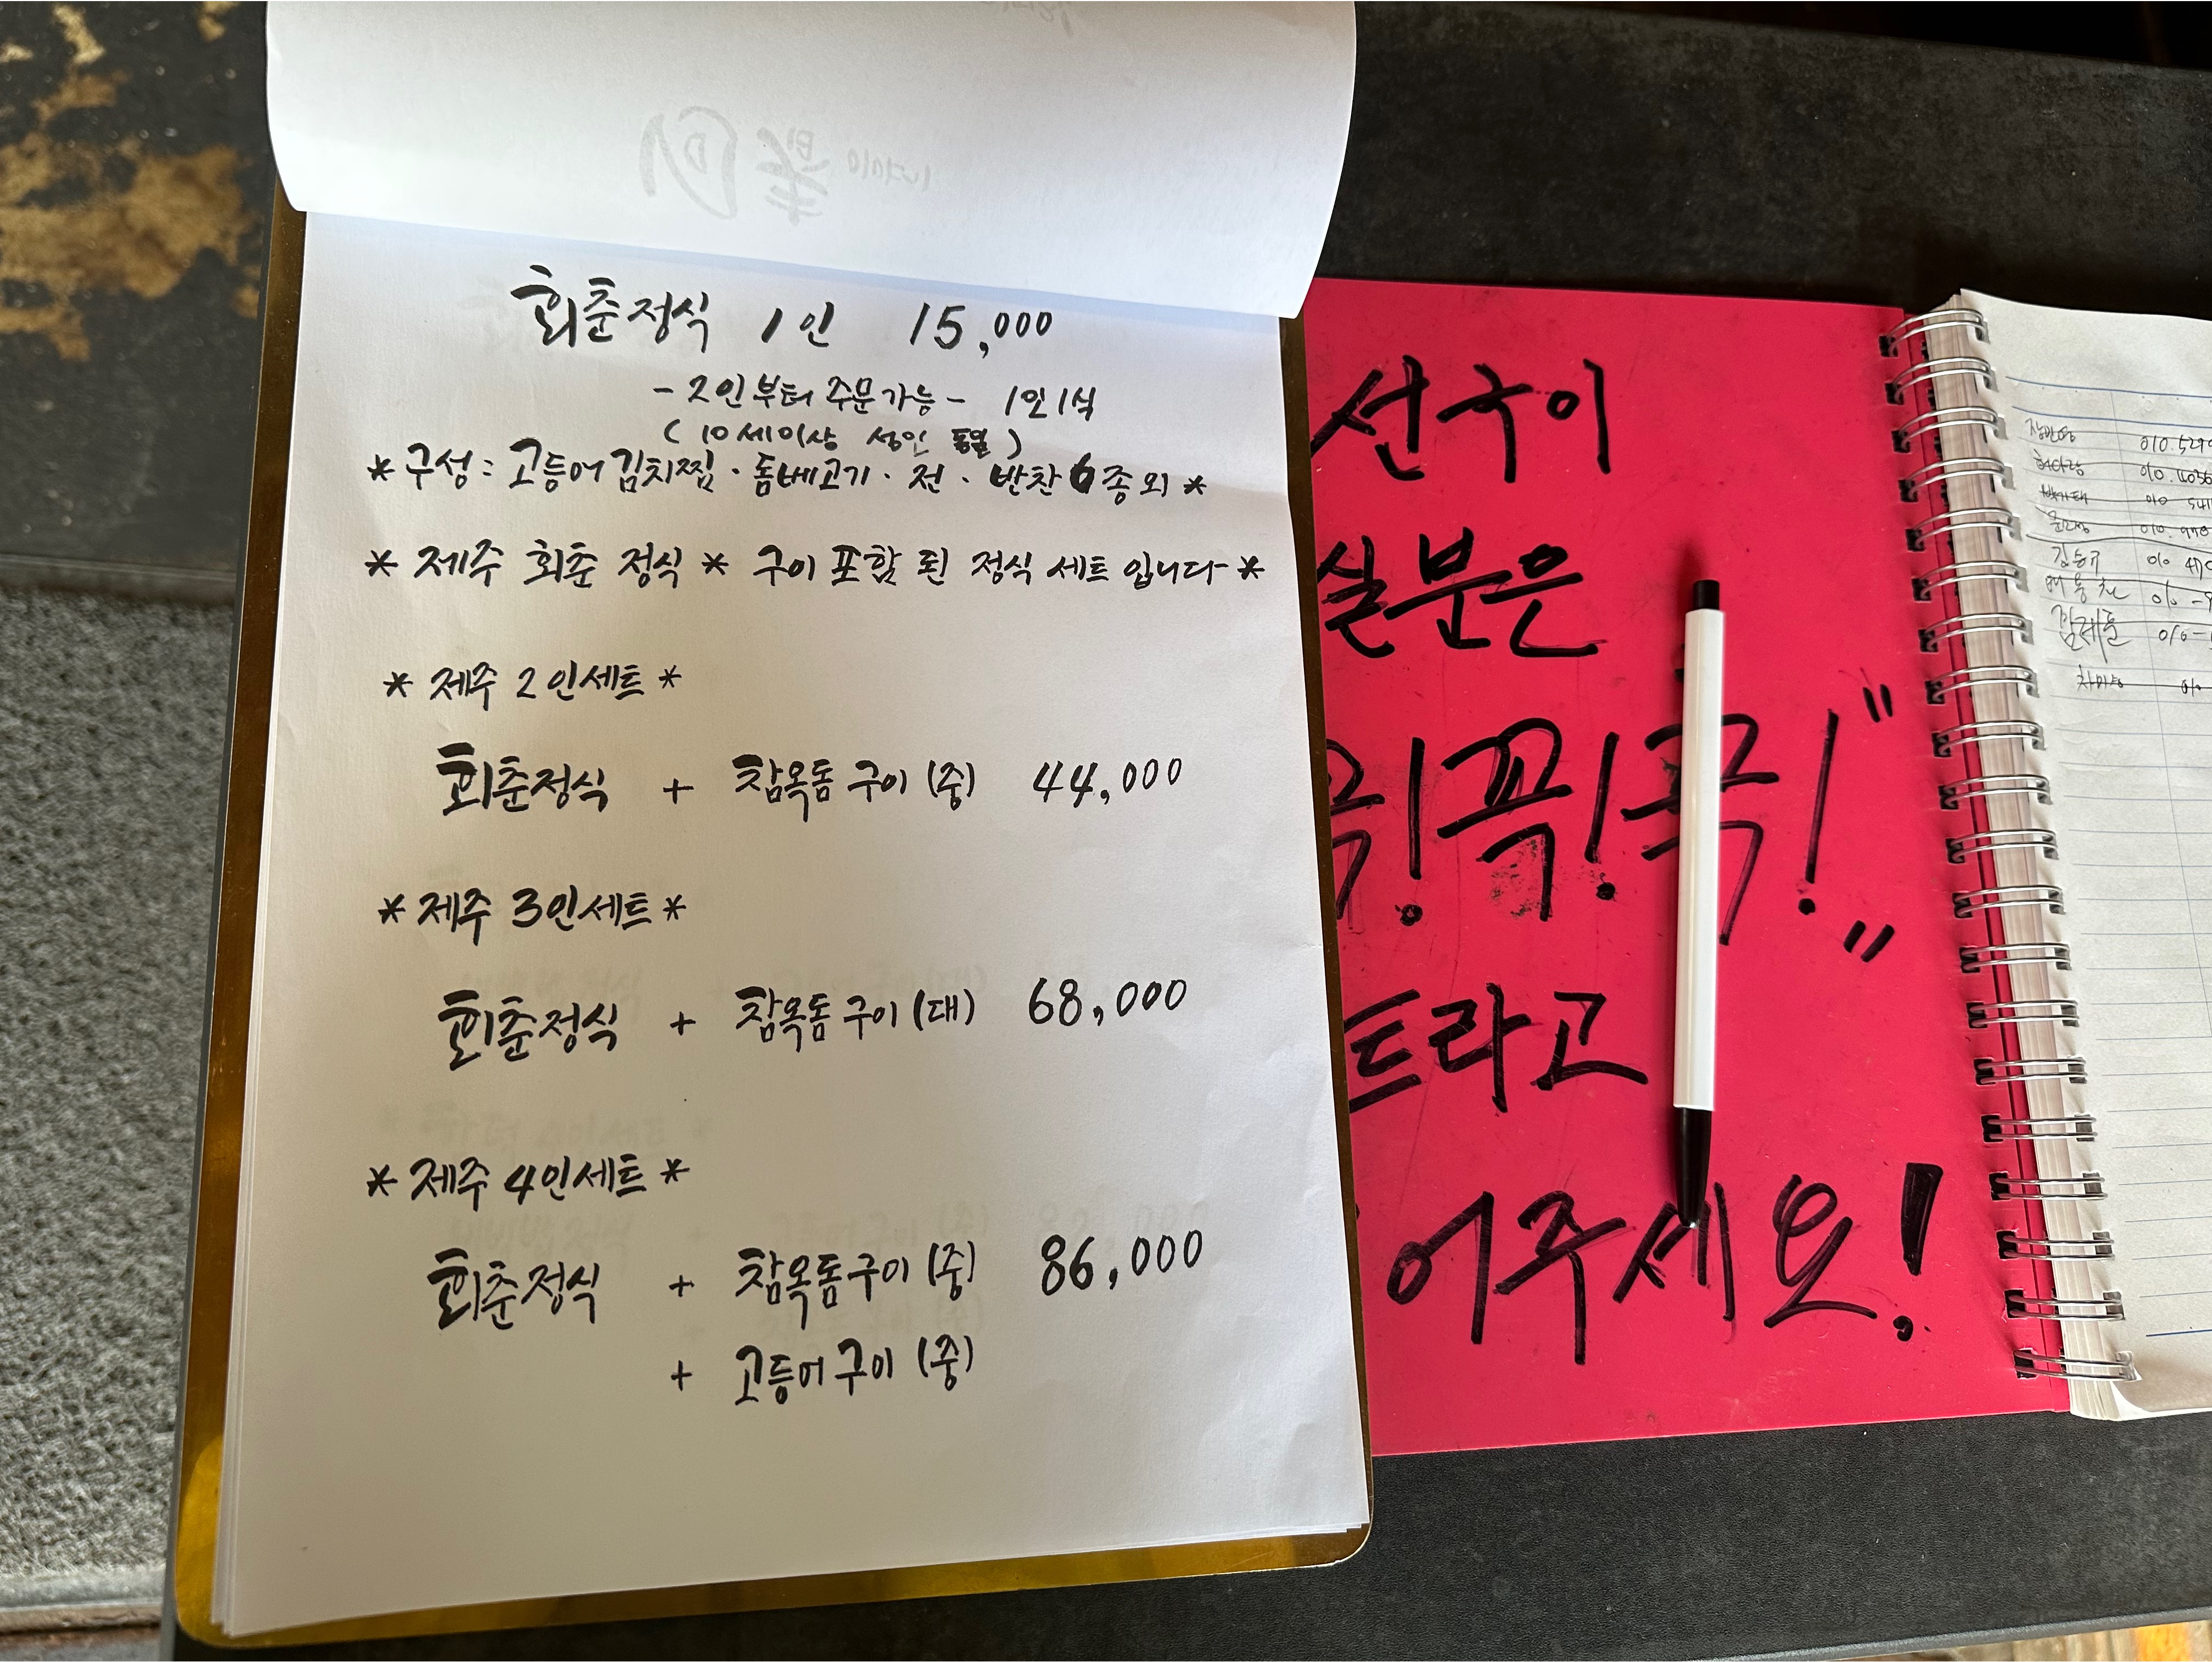 회춘정식 1인 15,000
- 2인부터 주문가능 - 1인1식
(10세이상 성인 동일)
* 구성 : 고등어김치찜 · 돔베고기 · 전 · 반찬 6종 외 *
* 제주 회춘 정식 * 구이 포함 된 정식 세트 입니다 *
* 제주 2인세트 *
회춘정식 + 참옥돔 구이 (중) 44,000
* 제주 3인세트 *
회춘정식 + 참옥돔 구이 (대) 68,000
* 제주 4인세트 *
회춘정식 + 참옥돔구이 (중) 86,000
+ 고등어구이 (중)
선구이
실분은
꼭! 꼭! 꼭!"
트라고
어주세요!